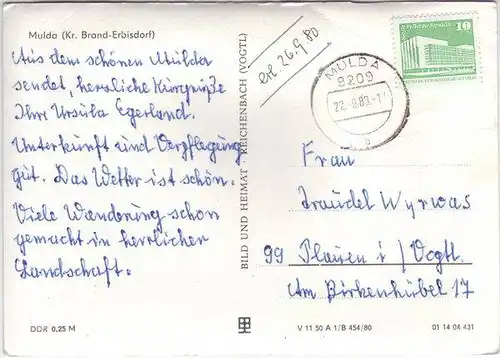 Mulda (Kr. Brand-Erbisdorf)
Aus dem schönen Mulda
sendet, herzliche Kurgrüße
Ihre Ursula Egerland.
Unterkunft und Verpflegung
gut. Das Wetter ist schön.
Viele Wanderung schon
gemacht in herrlicher
Landschaft.
DDR 0,25 M
BILD UND HEIMAT REICHENBACH (VOGTL)
erl 26.9.80
MULDA
9209
10
Frau
Traudel Wyrwas
99 Plauen i/Vogtl.
Am Birkenhübel 17
V 11 50 A 1/B 454/80
01 14 04 431